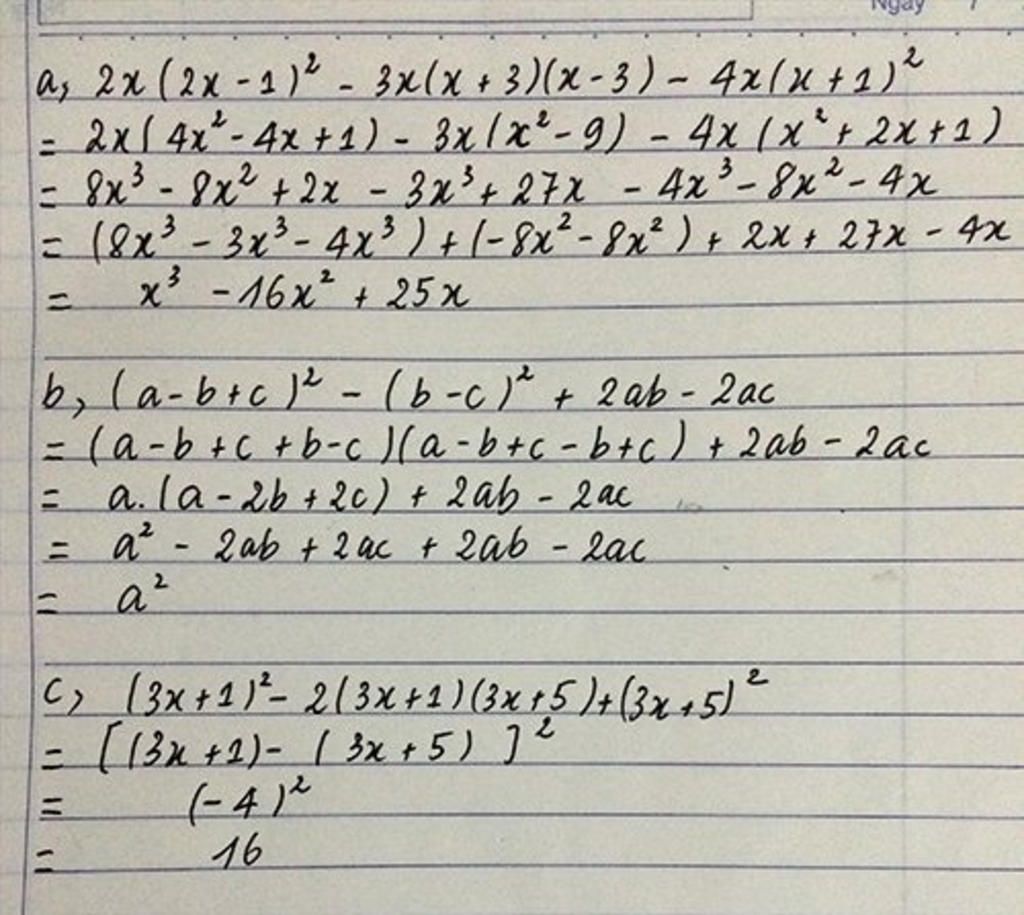 Ngày
a, 2x(2x-1)² - 3x(x+3)(x-3) - 4x(x+1)²
= 2x(4x²-4x+1) - 3x(x²-9) - 4x(x²+2x+1)
= 8x³ - 8x² + 2x - 3x³ + 27x - 4x³ - 8x² - 4x
= (8x³ - 3x³ - 4x³) + (-8x² - 8x²) + 2x + 27x - 4x
= x³ - 16x² + 25x
b, (a-b+c)² - (b-c)² + 2ab - 2ac
= (a-b+c+b-c)(a-b+c-b+c) + 2ab - 2ac
= a.(a-2b+2c) + 2ab - 2ac
= a² - 2ab + 2ac + 2ab - 2ac
= a²
c, (3x+1)² - 2(3x+1)(3x+5)+(3x+5)²
= [(3x+1)-(3x+5)]²
= (-4)²
= 16